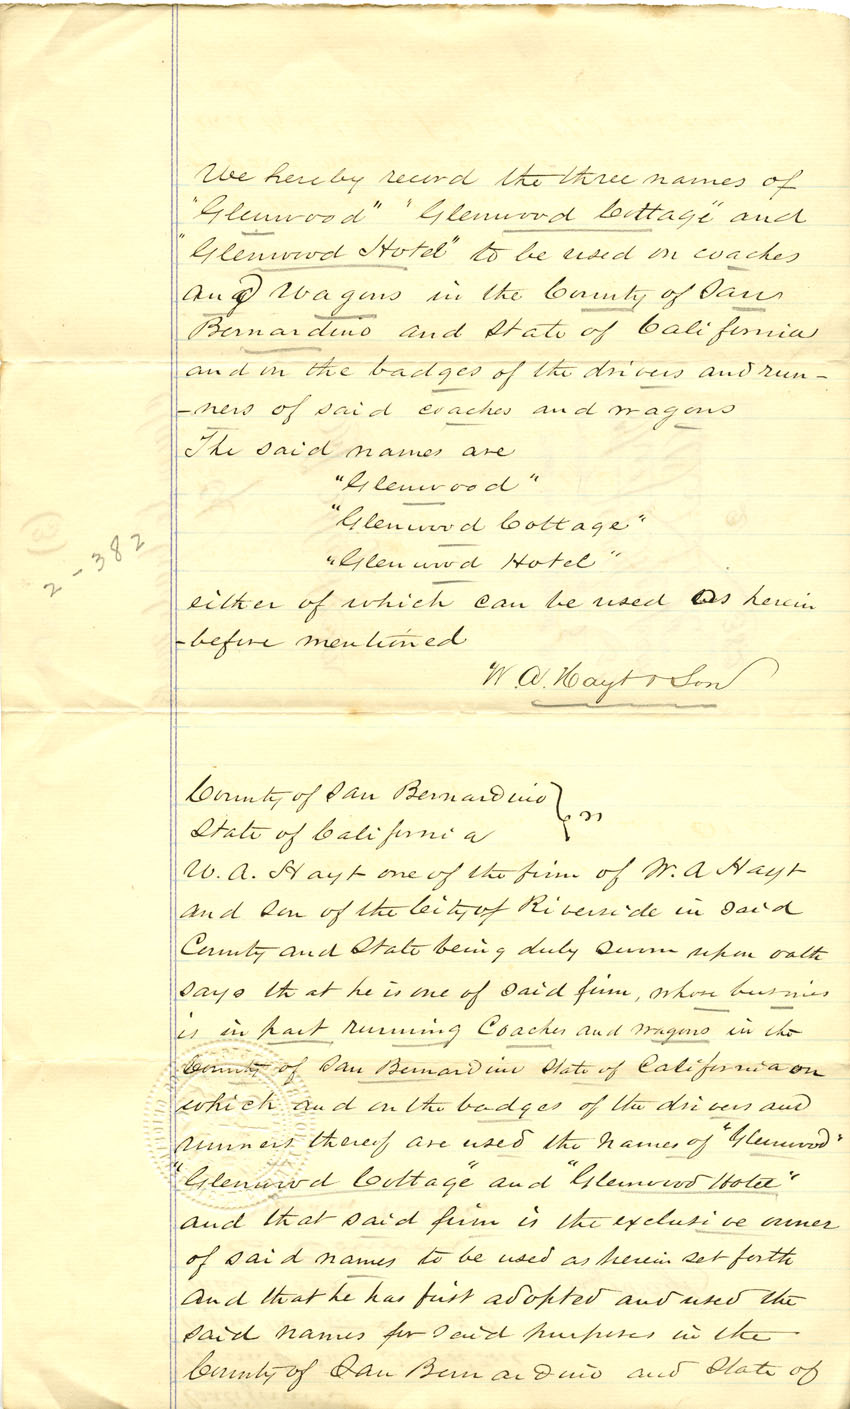 We hereby record the three names of
"Glenwood" "Glenwood Cottage" and
"Glenwood Hotel" to be used on coaches
and Wagons in the County of San
Bernardino and State of California
and on the badges of the drivers and run-
-ners of said coaches and wagons
The said names are
"Glenwood"
"Glenwood Cottage"
"Glenwood Hotel"
2-382
either of which can be used as herein
-before mentioned
W. A. Hayt & Son
County of San Bernardino
State of California } ss
W. A. Hayt one of the firm of W. A Hayt
and Son of the City of Riverside in said
County and State being duly sworn upon oath
says that he is one of said firm, whose business
is in part running Coaches and wagons in the
County of San Bernardino State of California on
which and on the badges of the drivers and
runners thereof are used the names of "Glenwood"
"Glenwood Cottage" and "Glenwood Hotel"
and that said firm is the exclusive owner
of said names to be used as herein set forth
and that he has first adopted and used the
said names for said purposes in the
County of San Bernardino and State of